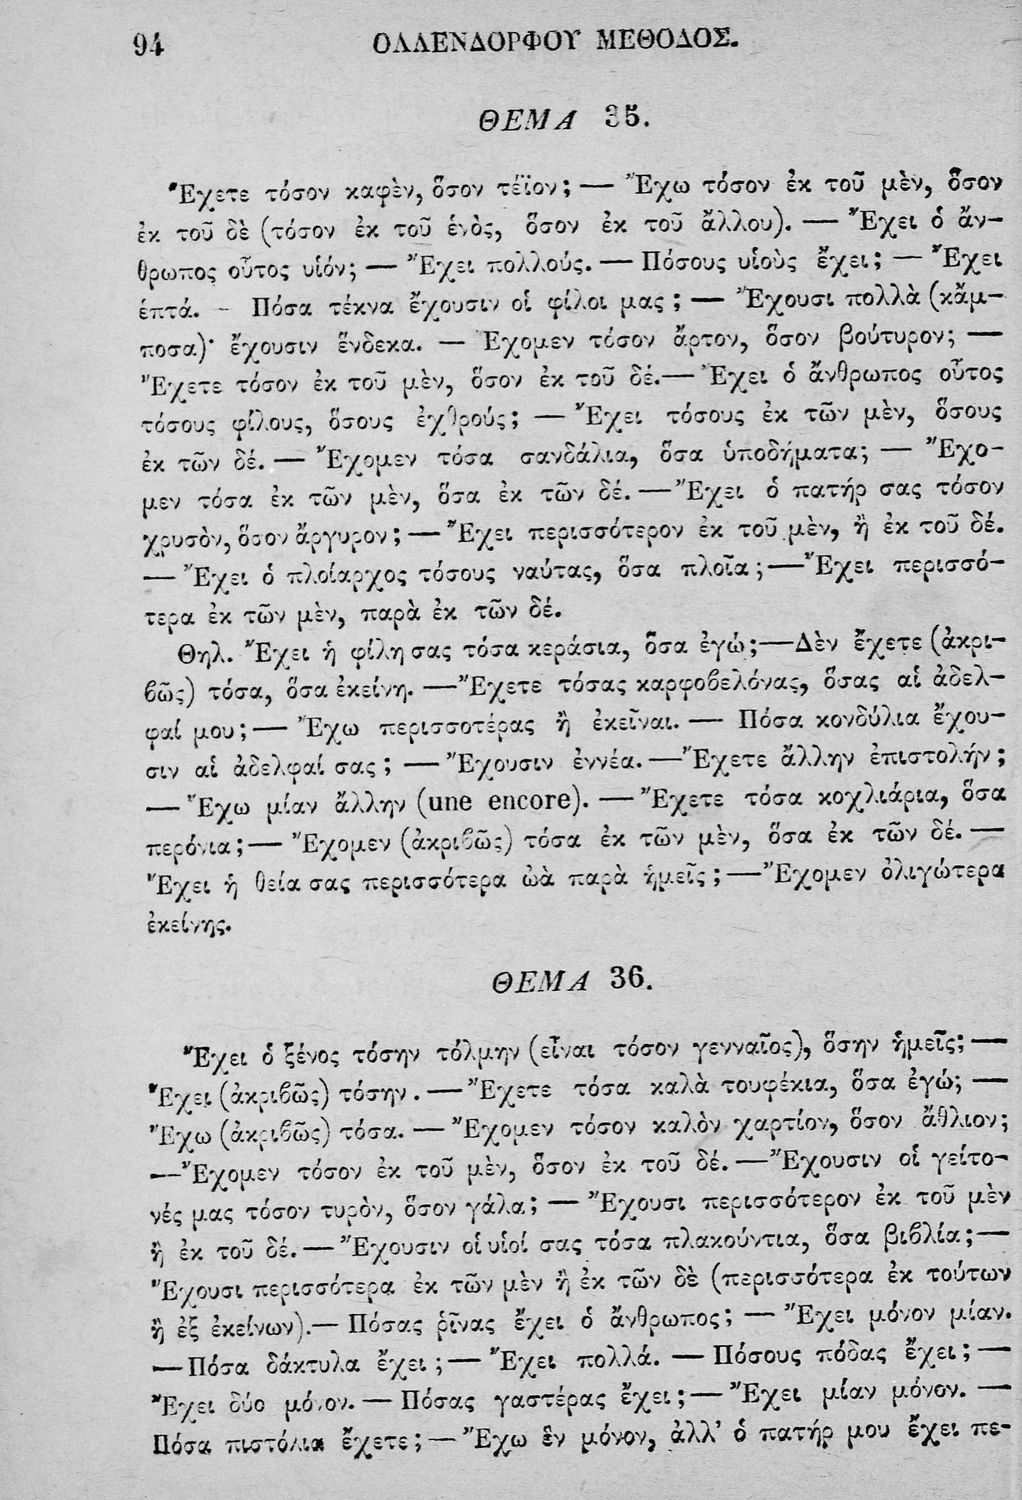 94
ΟΛΛΕΝΔΟΡΦΟΥ ΜΕΘΟΔΟΣ.
ΘΕΜΑ 35.
Ἔχετε τόσον καφὲν, ὅσον τέϊον; — Ἔχω τόσον ἐκ τοῦ μὲν, ὅσον
ἐκ τοῦ δὲ (τόσον ἐκ τοῦ ἑνὸς, ὅσον ἐκ τοῦ ἄλλου). — Ἔχει ὁ ἄν-
θρωπος οὗτος υἱόν; — Ἔχει πολλούς. — Πόσους υἱοὺς ἔχει; — Ἔχει
ἑπτά. - Πόσα τέκνα ἔχουσιν οἱ φίλοι μας; — Ἔχουσι πολλὰ (κἄμ-
ποσα)· ἔχουσιν ἕνδεκα. — Ἔχομεν τόσον ἄρτον, ὅσον βούτυρον; —
Ἔχετε τόσον ἐκ τοῦ μὲν, ὅσον ἐκ τοῦ δέ.— Ἔχει ὁ ἄνθρωπος οὗτος
τόσους φίλους, ὅσους ἐχθρούς; — Ἔχει τόσους ἐκ τῶν μὲν, ὅσους
ἐκ τῶν δέ. — Ἔχομεν τόσα σανδάλια, ὅσα ὑποδήματα; — Ἔχο-
μεν τόσα ἐκ τῶν μὲν, ὅσα ἐκ τῶν δέ. — Ἔχει ὁ πατήρ σας τόσον
χρυσὸν, ὅσον ἄργυρον; — Ἔχει περισσότερον ἐκ τοῦ μὲν, ἢ ἐκ τοῦ δέ.
— Ἔχει ὁ πλοίαρχος τόσους ναύτας, ὅσα πλοῖα; — Ἔχει περισσό-
τερα ἐκ τῶν μὲν, παρὰ ἐκ τῶν δέ.
Θηλ. Ἔχει ἡ φίλη σας τόσα κεράσια, ὅσα ἐγώ; — Δὲν ἔχετε (ἀκρι-
βῶς) τόσα, ὅσα ἐκείνη. — Ἔχετε τόσας καρφοβελόνας, ὅσας αἱ ἀδελ-
φαί μου; — Ἔχω περισσοτέρας ἢ ἐκεῖναι. — Πόσα κονδύλια ἔχου-
σιν αἱ ἀδελφαί σας; — Ἔχουσιν ἐννέα. — Ἔχετε ἄλλην ἐπιστολήν;
— Ἔχω μίαν ἄλλην (une encore). — Ἔχετε τόσα κοχλιάρια, ὅσα
περόνια; — Ἔχομεν (ἀκριβῶς) τόσα ἐκ τῶν μὲν, ὅσα ἐκ τῶν δέ. —
Ἔχει ἡ θεία σας περισσότερα ὠὰ παρὰ ἡμεῖς; — Ἔχομεν ὀλιγώτερα
ἐκείνης.
ΘΕΜΑ 36.
Ἔχει ὁ ξένος τόσην τόλμην (εἶναι τόσον γενναῖος), ὅσην ἡμεῖς; —
Ἔχει (ἀκριβῶς) τόσην. — Ἔχετε τόσα καλὰ τουφέκια, ὅσα ἐγώ; —
Ἔχω (ἀκριβῶς) τόσα. — Ἔχομεν τόσον καλὸν χαρτίον, ὅσον ἄθλιον;
— Ἔχομεν τόσον ἐκ τοῦ μὲν, ὅσον ἐκ τοῦ δέ. — Ἔχουσιν οἱ γείτο-
νές μας τόσον τυρὸν, ὅσον γάλα; — Ἔχουσι περισσότερον ἐκ τοῦ μὲν
ἢ ἐκ τοῦ δέ. — Ἔχουσιν οἱ υἱοί σας τόσα πλακούντια, ὅσα βιβλία; —
Ἔχουσι περισσότερα ἐκ τῶν μὲν ἢ ἐκ τῶν δὲ (περισσότερα ἐκ τούτων
ἢ ἐξ ἐκείνων).— Πόσας ῥῖνας ἔχει ὁ ἄνθρωπος; — Ἔχει μόνον μίαν.
— Πόσα δάκτυλα ἔχει; — Ἔχει πολλά. — Πόσους πόδας ἔχει; —
Ἔχει δύο μόνον. — Πόσας γαστέρας ἔχει; — Ἔχει μίαν μόνον. —
Πόσα πιστόλια ἔχετε; — Ἔχω ἓν μόνον, ἀλλ' ὁ πατήρ μου ἔχει πε-